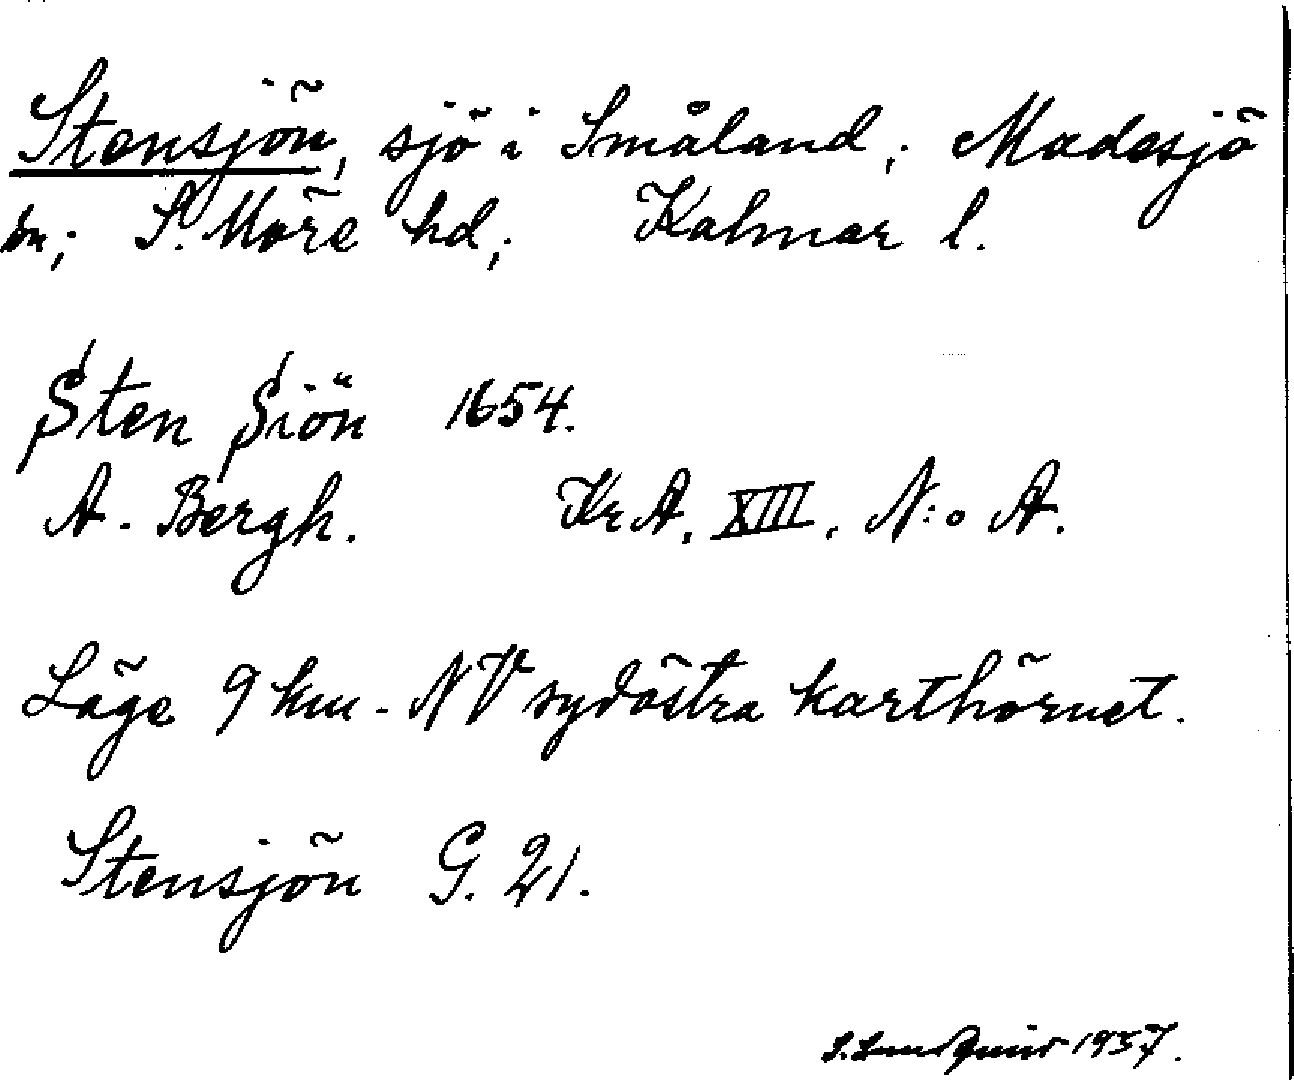 Stensjön, sjö i Småland; Madesjö
sn; S. Möre hd; Kalmar l.
Sten Siön 1654.
A. Bergh. KrA. XIII. N:o A.
Läge 9 km. NV sydöstra karthörnet.
Stensjön G. 21.
S. Lundquist 1937.